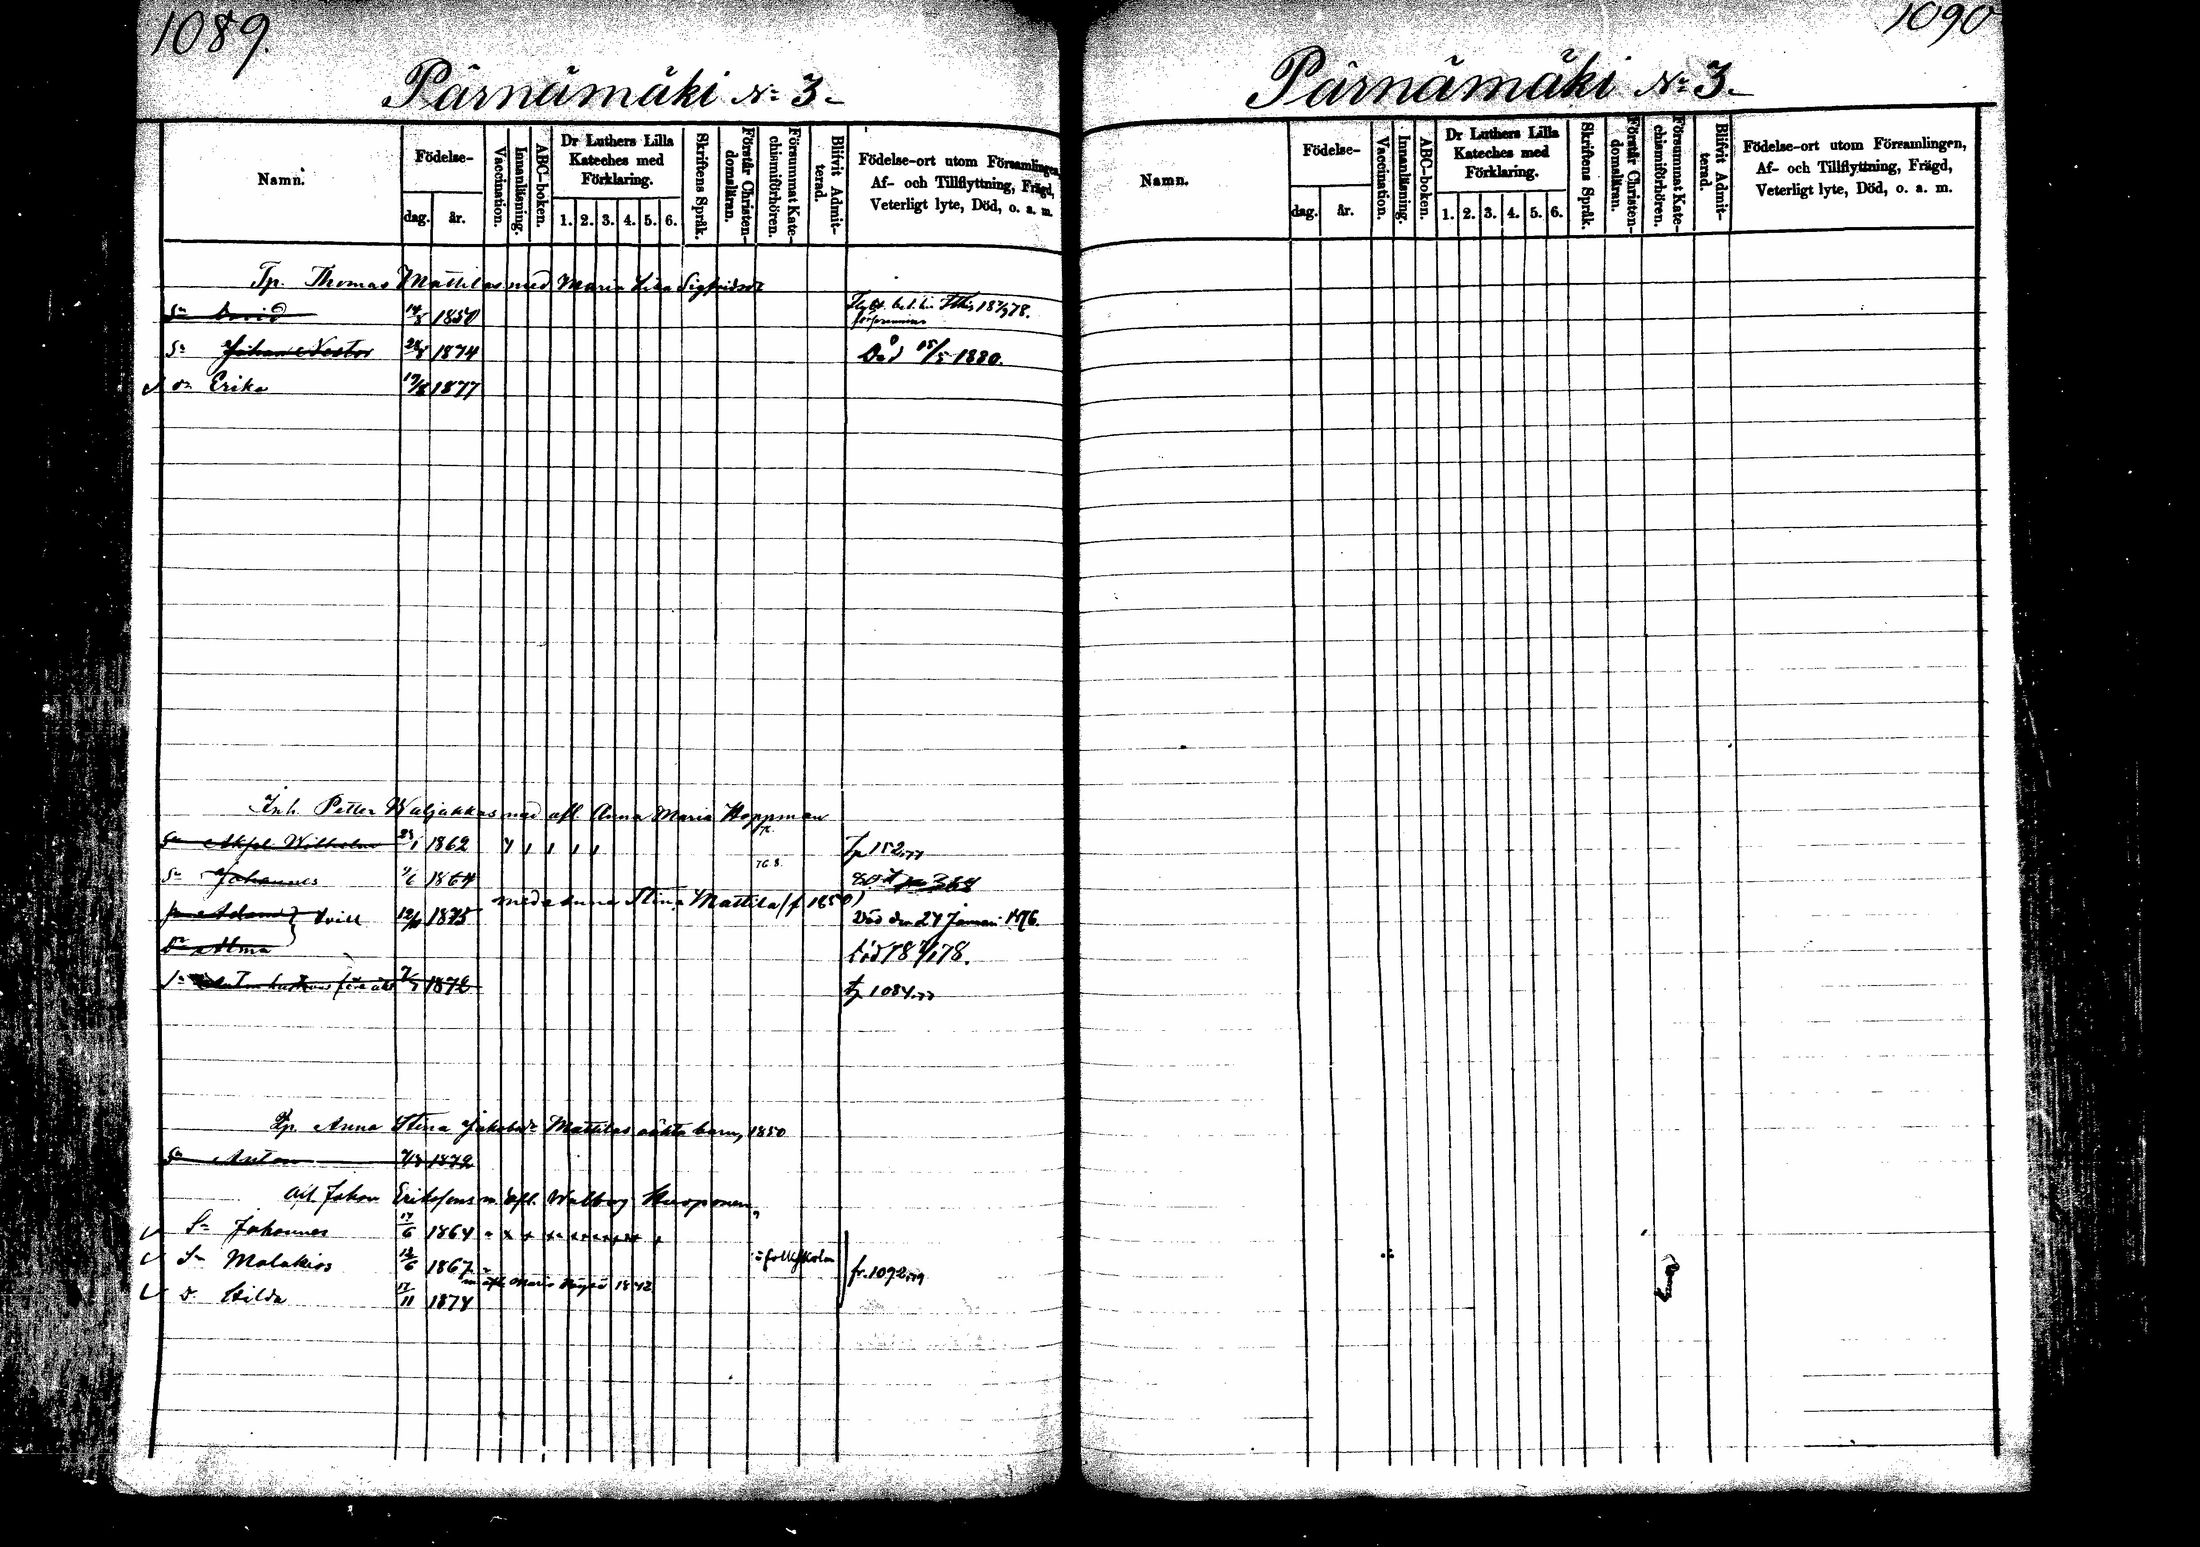 1089.
Pärnämäki No 3.
Namn.
Födelse-
dag.
år.
Vaccination.
Innanläsning.
ABC-boken.
Dr Luthers Lilla
Kateches med
Förklaring.
1. 2. 3. 4. 5. 6.
Skriftens Språk.
Förstår Christen-
domsläran.
Försummat Kate-
chismiförhören.
Blifvit Admit-
terad.
Födelse-ort utom Församlingen,
Af- och Tillflyttning, Frägd,
Veterligt lyte, Död, o. a. m.
Tp. Thomas Mattilas med Maria Lisa Sigfridsdr
Sn David 14/8 1850
Sn Johan Nestor 28/8 1874 Död 15/5 1880.
Dr Erika 1877
Inh. Petter Waljakkas med afl. Anna Maria Hoppman
Sn Wilhelm 1862 152
Sn Johannes 1864
med Anna Stina Mattila (f. 1850)
Adam tvill 1875 Död den 27 Januari 1876.
Dr Alma död
1876 1084
Anna Stina Jakobsdr Mattilas oäkta barn, 1850
Sn Anton 1872
Johan Eriksons m. afl. Walborg
Sn Johannes 17/6 1864
Sn Malakias 12/6 1867 folkskolan fr. 1092
m. afl. Maria 1842
D. Hilda 17/11 1878
1090
Pärnämäki No 3.
Namn.
Födelse-
dag.
år.
Vaccination.
Innanläsning.
ABC-boken.
Dr Luthers Lilla
Kateches med
Förklaring.
1. 2. 3. 4. 5. 6.
Skriftens Språk.
Förstår Christen-
domsläran.
Försummat Kate-
chismiförhören.
Blifvit Admit-
terad.
Födelse-ort utom Församlingen,
Af- och Tillflyttning, Frägd,
Veterligt lyte, Död, o. a. m.